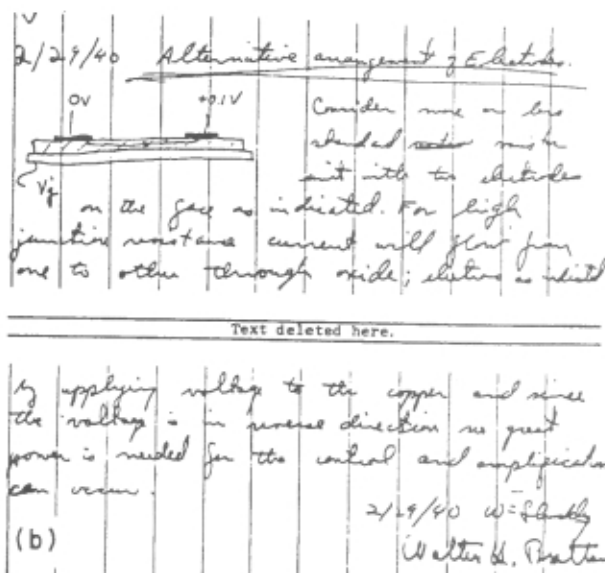 2/29/40 Alternative arrangement of Electrodes.
0V +0.1V
Consider more or less
standard
unit with two electrodes
Vj
on the face as indicated. For high
junction resistance current will flow from
one to other through oxide; electrons as indicated
Text deleted here.
by applying voltage to the copper and since
the voltage is in reverse direction no great
power is needed for the control and amplification
can occur.
2/29/40 W Shockley
(b)
Walter H. Brattain